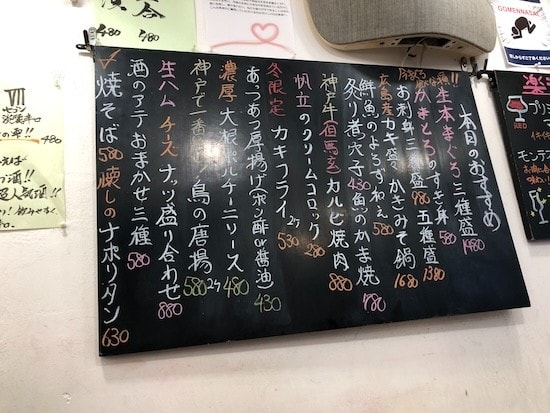 本日のおすすめ
生本まぐろ三種盛 1480
かまとろのすき身 580
お刺身三種盛 980 五種盛 1380
広島産 カキみそ鍋 1680
鮮魚のよろずねぇ 580
炙り煮穴子 430 魚のかま焼 780
神戸牛(但馬産)カルビ焼肉 880
帆立のクリームコロッケ 280
冬限定 カキフライ 2ケ 530
あっつあつ厚揚げ(ポン酢or醤油) 430
濃厚 大根ポルチーニソース 480
神戸で一番 鳥の唐揚 2ケ 580
生ハム チーズ ナッツ盛り合わせ 880
酒のアテおまかせ三種 580
焼そば 580 懐しのナポリタン 630
GOMENNASAI
480
480
Ⅶ
セブン
480
RED
プリ
モンテ
楽